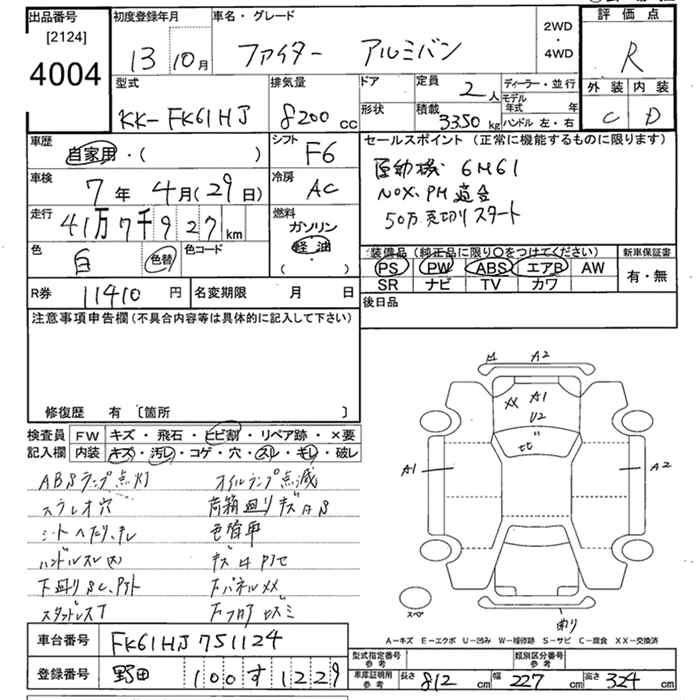 出品番号 [2124] 4004
初度登録年月 13 10月
車名・グレード ファイター アルミバン
2WD・4WD
評価点 R
外装 C 内装 D
型式 KK-FK61HJ
排気量 8200 cc
ドア
形状
定員 2人
積載 3350 kg
ディーラー・並行
モデル年式 年
ハンドル 左・右
車歴 自家用・( )
シフト F6
車検 7年 4月(29日)
冷房 AC
走行 41万7千927 km
燃料 ガソリン 軽油 ( ・ )
色 白 色替
色コード
セールスポイント(正常に機能するものに限ります)
原動機 6M61
NOX.PM適合
50万売切りスタート
装備品(純正品に限り○をつけてください)
PS PW ABS エアB AW
SR ナビ TV カワ
新車保証書 有・無
R券 11410 円
名変期限 月 日
後日品
注意事項申告欄(不具合内容等は具体的に記入して下さい)
修復歴 有 [箇所 ]
検査員記入欄
FW キズ・飛石・ヒビ割・リペア跡・×要
内装 キズ・汚レ・コゲ・穴・スレ・キレ・破レ
ABSランプ点灯 オイルランプ点滅
ステレオ穴 荷箱廻りキズ
シートヘタリ、キレ 色管車
ハンドルスレ
下廻り
スタッドレス
A2
XX A1
U2
ヒビ
A1
A2
スペア
曲り
A-キズ E-エクボ U-凹み W-補修跡 S-サビ C-腐食 XX-交換済
車台番号 FK61HJ 751124
登録番号 野田 100 す 1229
型式指定番号 参考
類別区分番号 参考
車庫証明用 参考 長さ 812 cm 幅 227 cm 高さ 324 cm